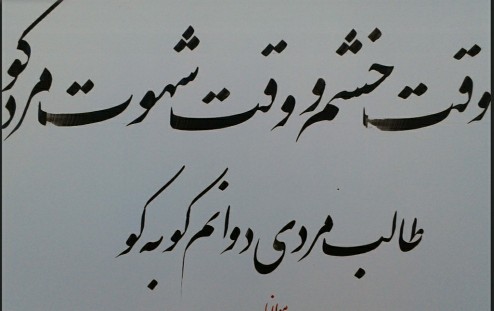 وقت خشم و وقت شهوت مرد کو
طالب مردی دوانم کو به کو
مولانا